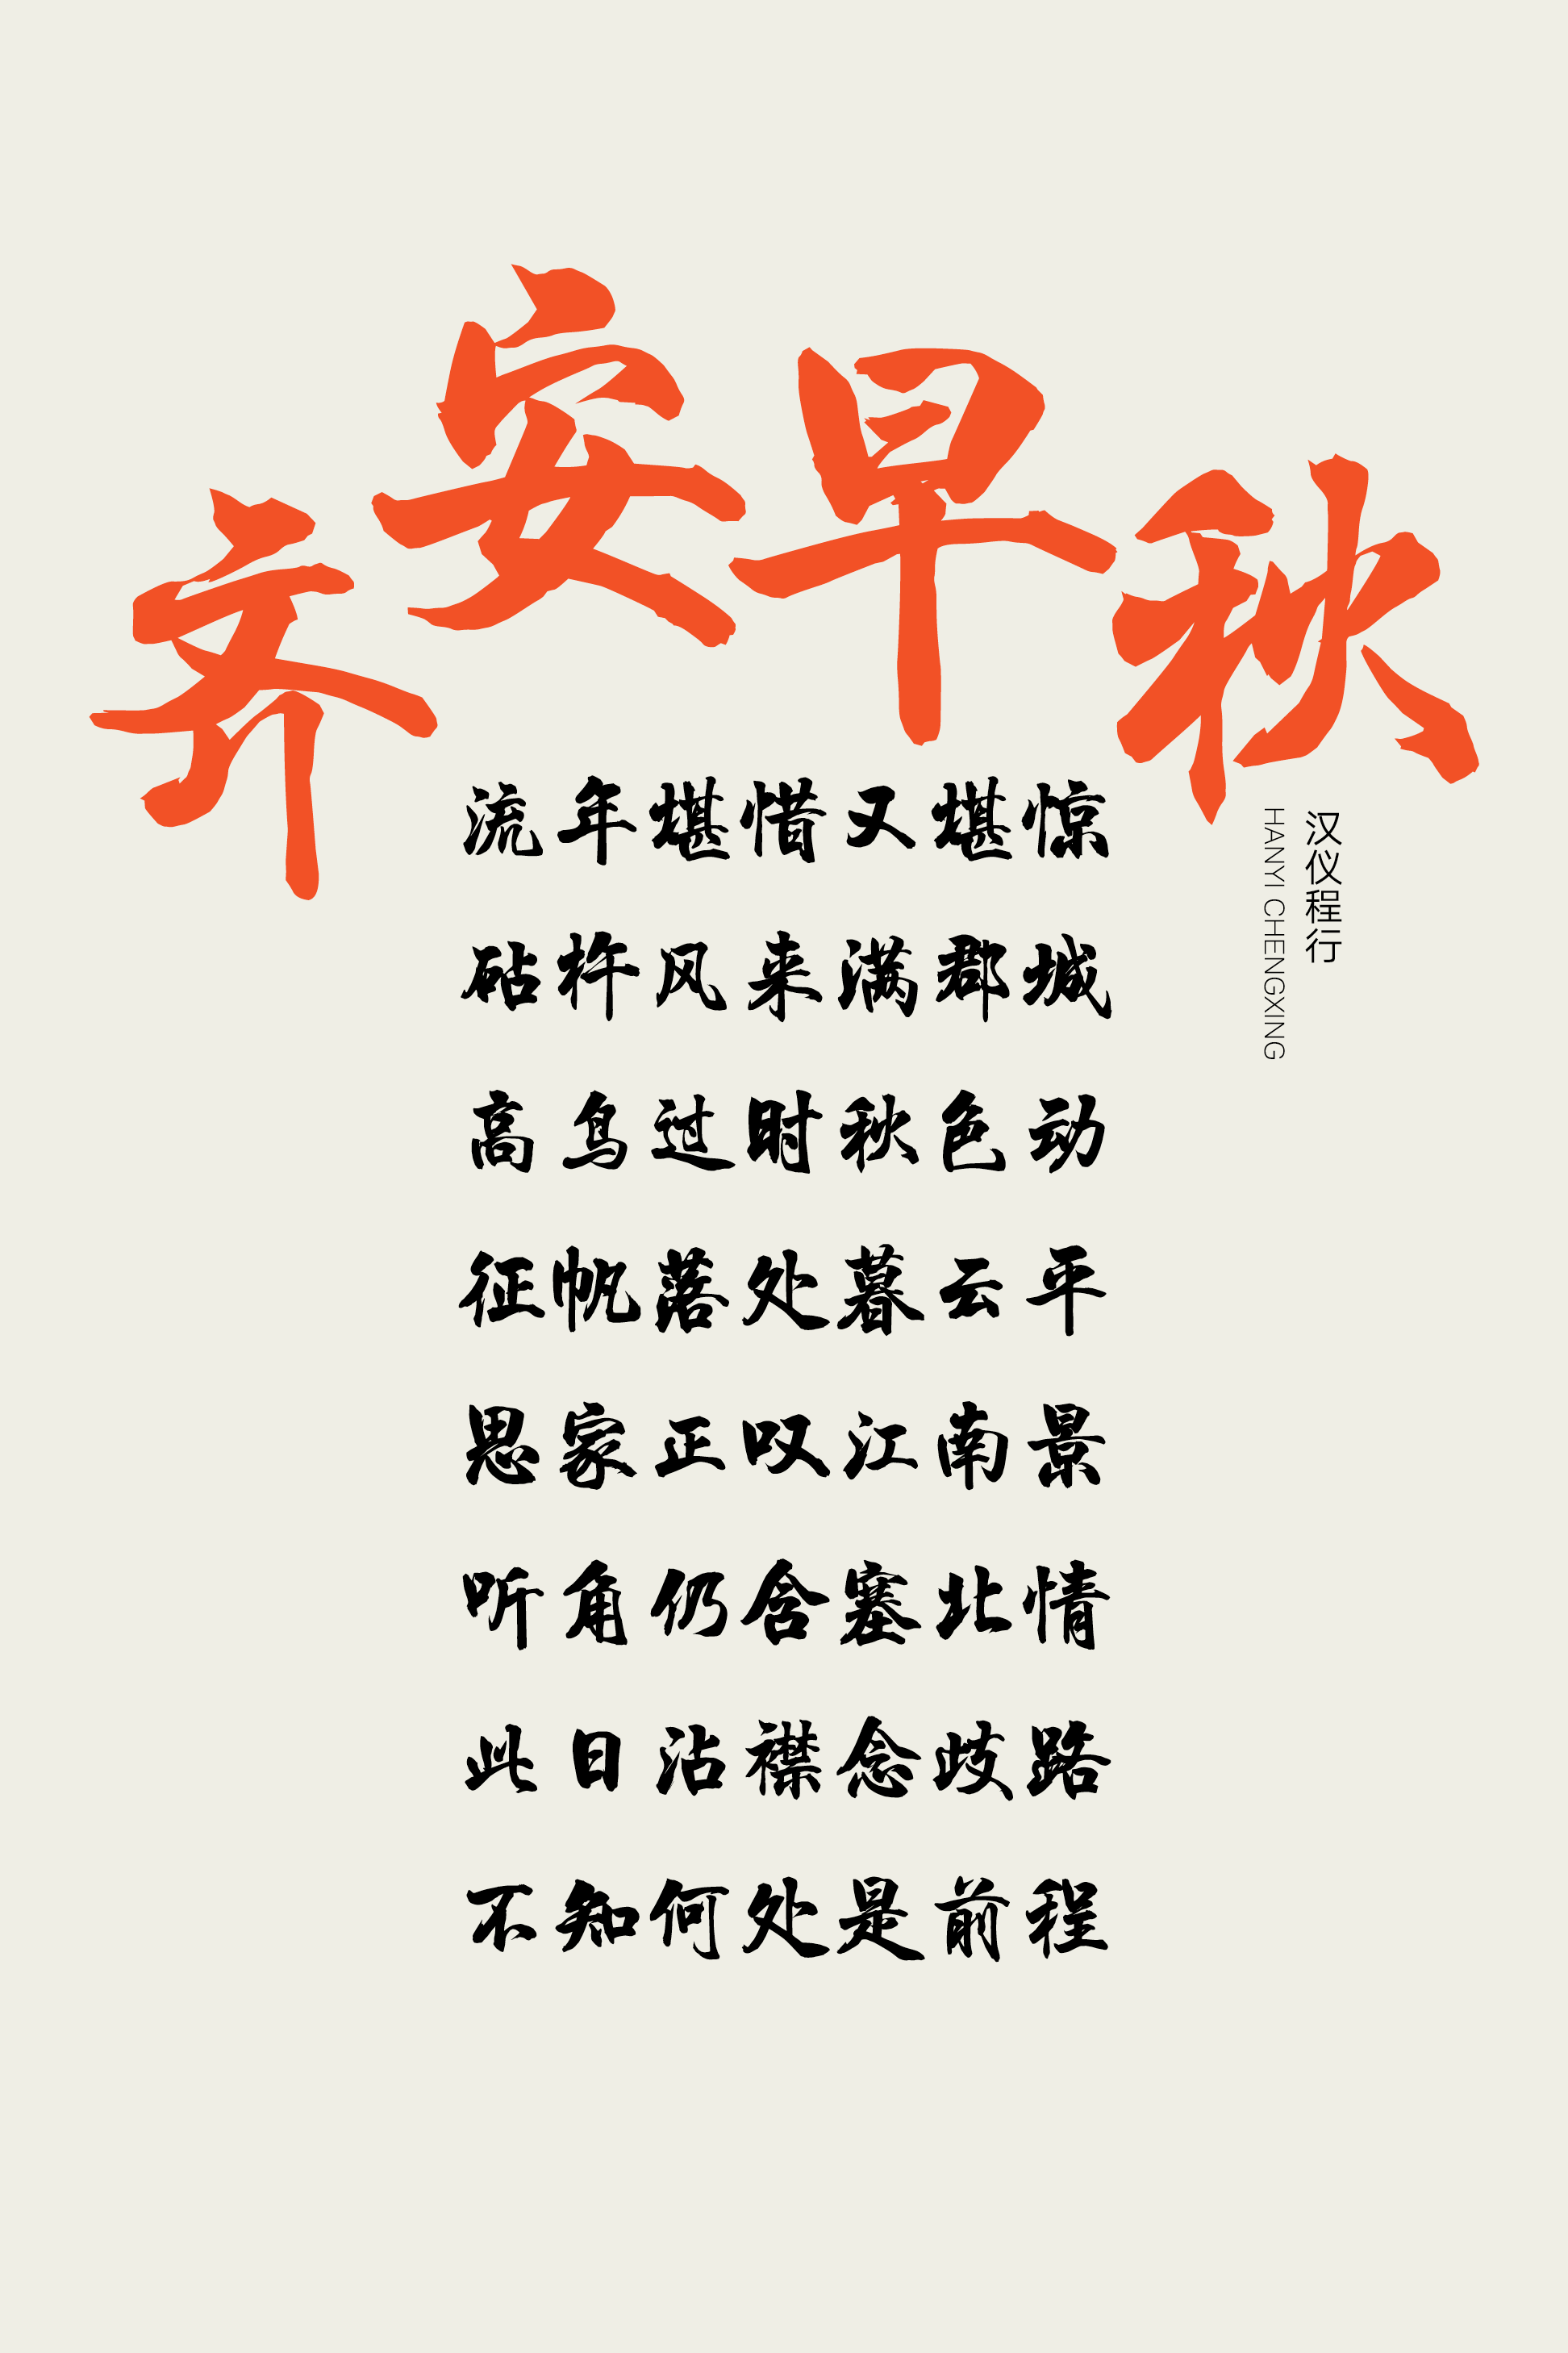 齐安早秋
流年堪惜又堪惊
砧杵风来满郡城
高鸟过时秋色动
征帆落处暮云平
思家正叹江南景
听角仍含塞北情
此日沾襟念岐路
不知何处是前程
汉仪程行
HANYI CHENGXING